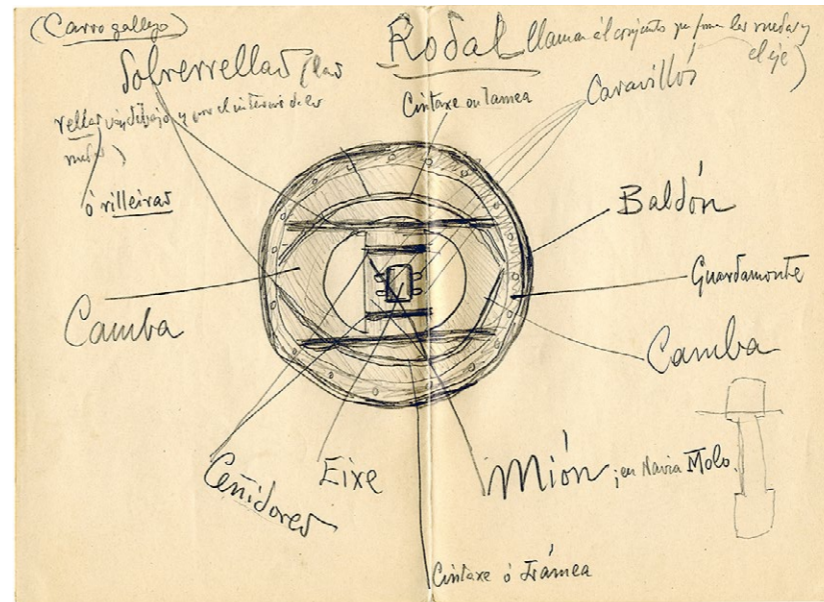 (Carro gallego)
Rodal llaman al conjunto que forman las ruedas y
el eje)
Sobrerrellas (las
rellas van debajo y por el interior de las
ruedas)
ó rilleiras
Cintaxe ou tamea
Caravillós
Baldón
Guardamonte
Camba
Camba
Ceñidores
Eixe
Mión; en Navia Molo.
Cintaxe ó Trámea